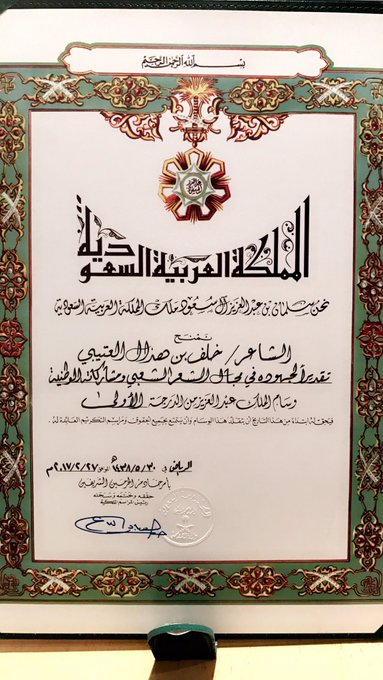 بسم الله الرحمن الرحيم
المملكة العربية السعودية
نحن سلمان بن عبدالعزيز آل سعود ملك المملكة العربية السعودية
نمنح
الشاعر/ خلف بن هذال العتيبي
تقديراً لجهوده في مجال الشعر الشعبي ومشاركاته الوطنية
وسام الملك عبدالعزيز من الدرجة الأولى
فيحق له ابتداءً من هذا التاريخ أن يتقلد هذا الوسام وأن يتمتع بجميع الحقوق ومراسم التكريم العائدة له.
الرياض في ١٤٣٨/٥/٣٠هـ ٢٠١٧/٢/٢٧م
بأمر خادم الحرمين الشريفين
حققه وختمه وسجله
رئيس المراسم الملكية